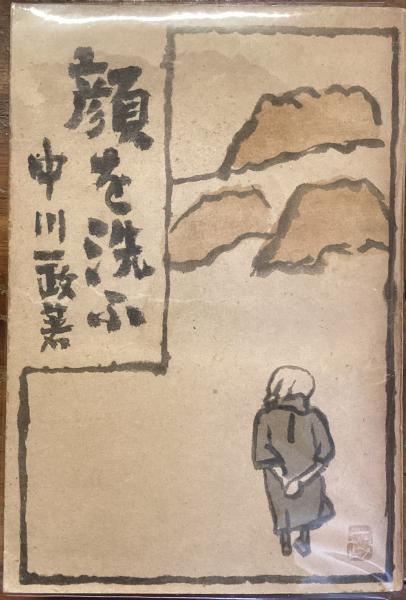 顔を洗ふ
中川一政著